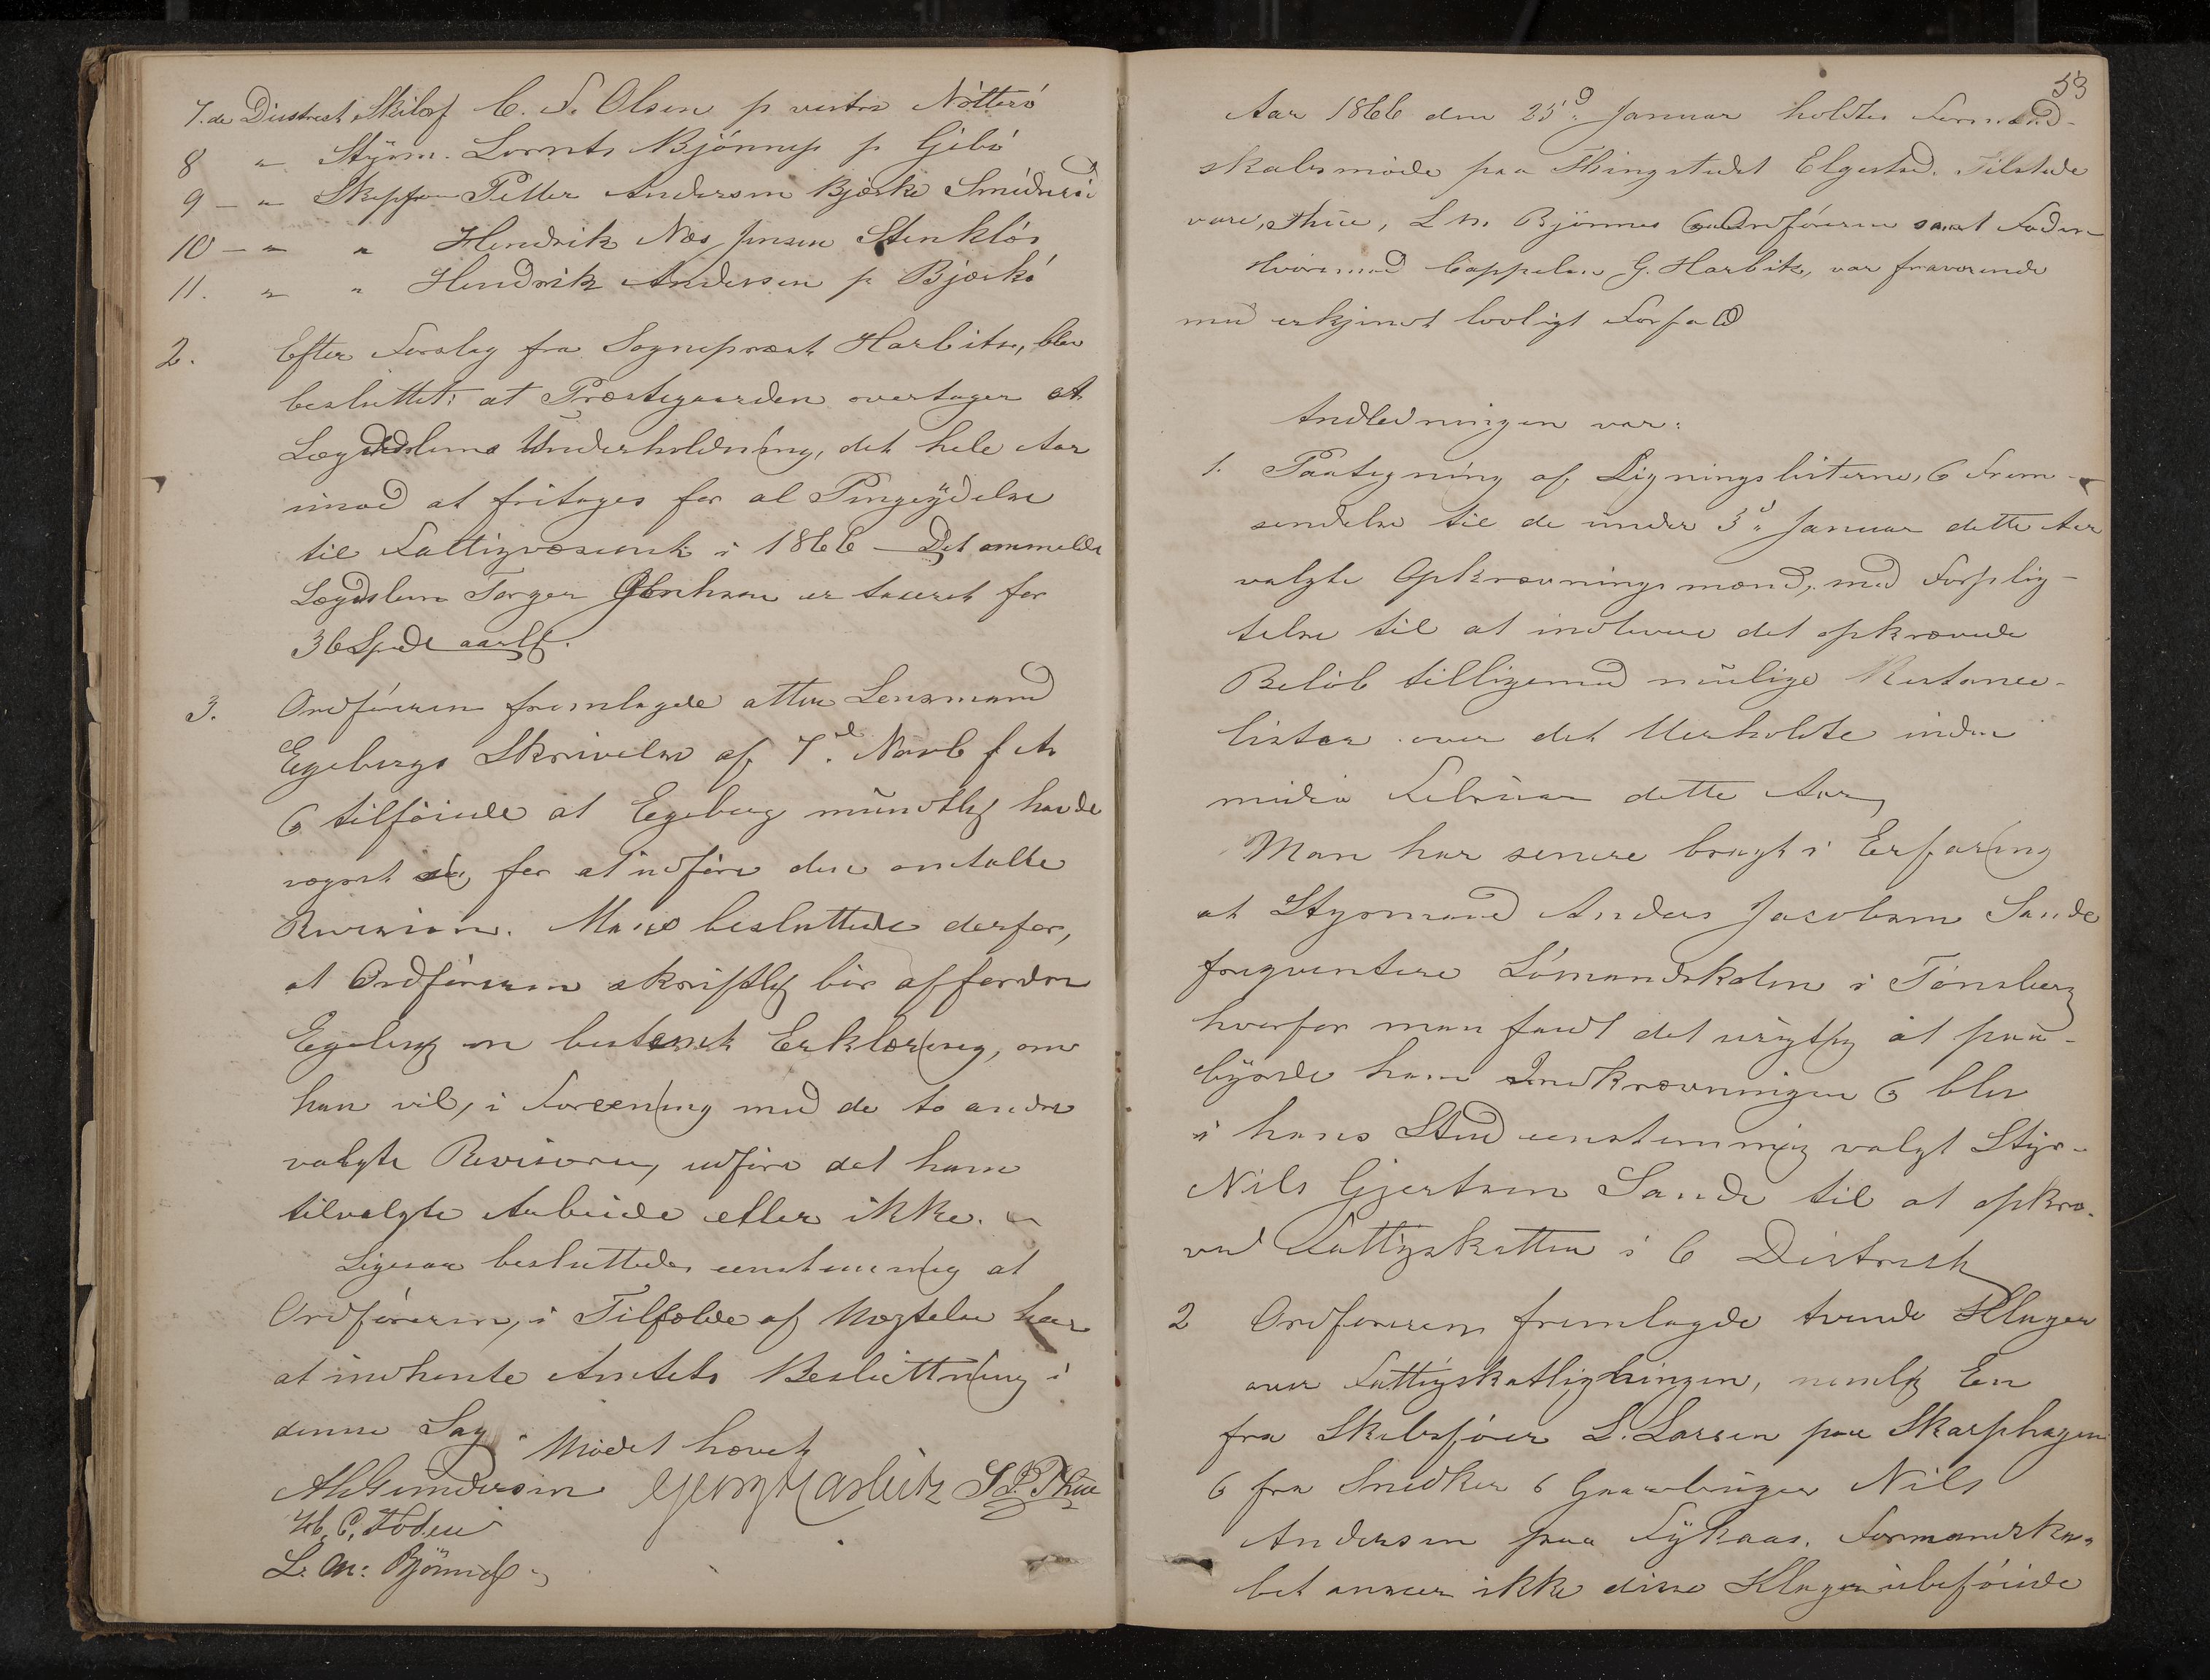 7.de Disstrict Skilsf C. F. Olsen p vestre Nötterö
8 " Styrm. Lornts Bjönnes p Gibö
9 - " Skipper Petter Andersen Bjerke
10 - " " Hendrik Næs Jensen Stenklös
11. " " Hendrik Andersen p Bjerkö
2. Efter Forslag fra Sogneprest Harbitz, blev
besluttet: at Præstegaarden overtager et
Lægdslems Underholdning, det hele Aar
imod at fritages for al Pengeydelse
til Fattigvæsenet i 1866 - Det ommeldte
Lægdslem Torger er taxeret for
36 Spdl aarlig.
3. Ordföreren fremlagde atter Lensmand
Egebergs Skrivelse af 7de Novb f A
& tilföiede at Egeberg mündtlig havde
vægret sig for at udföre den omtalte
Revision. Man besluttede derfor,
at Ordföreren skriftlig bör affordre
Egeberg en bestemt Erklæring, om
han vil, i Foreening med de to andre
valgte Revisorer, udföre det ham
tilvalgte Arbeide eller ikke.
Ligesaa besluttedes eenstemmig at
Ordföreren, i Tilfælde af Nægtelse har
at indhente Amtets Beslüttning i
denne Sag. Mödet hævet
A Gundersen Georg Harbitz S. P. Thue
H. C. Foden
L. M. Bjönnes
53
Aar 1866 den 25d Januar holdtes Formand-
skabsmöde paa Thingstedet Elgestad. Tilstede
vare, Thue, L M. Bjönnes & Ordföreren samt Foden
Hvorimod Cappelen G. Harbitz, var fraværende
med erkjendt lovligt Forfald
Andledningen var:
1. Paategning af Ligningslisterne, & Frem-
sendelse til de ünder 3d Januar dette Aar
valgte Opkrævningsmænd, med Forplig-
telse til at indlevere det opkrævede
Belöb tilligemed muelige Restance-
lister over det Uerholdte inden
midio Februar dette Aar,
Man har senere bragt i Erfaring
at Styrmand Anders Jacobsen Sande
freqventere Sömandskolen i Tönsberg
hvorfor man fandt det urigtig at paa-
byrde ham Indkrævningen & blev
i hans Sted eenstemmig valgt Styr-
Nils Gjertsen Sande til at opkræ-
ve Fattigskatten i 6 Distrikt
2 Ordföreren fremlagde tvende Klager
over Fattigskatligningen, nemlig En
fra Skibsförer L. Larsen paa Skarphagen
& fra Snedker & Gaardbruger Nils
Andersen paa Fykaas. Formandska-
bet anseer ikke disse Klager ubeföiede